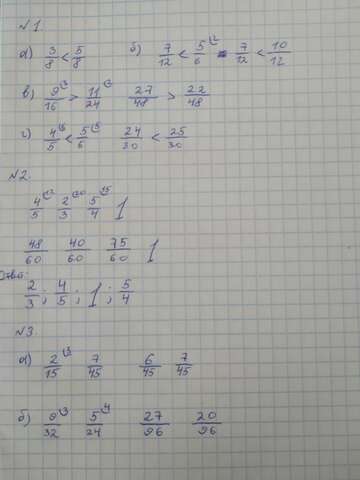 №1.
а) 3/8 < 5/8 б) 7/12 < 5/6 (2 = 7/12 < 10/12
в) 9/16 (3 > 11/24 (2 27/48 > 22/48
г) 4/5 (6 < 5/6 (5 24/30 < 25/30
№2.
4/5 (12 2/3 (20 5/4 (15 1
48/60 40/60 75/60 1
Ответ:
2/3; 4/5; 1; 5/4
№3.
а) 2/15 (3 7/45 6/45 7/45
б) 9/32 (3 5/24 (4 27/96 20/96